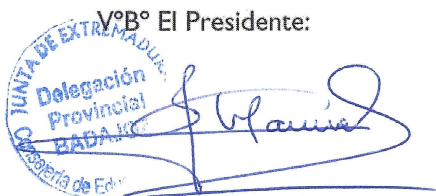 VºBº El Presidente:
JUNTA DE EXTREMADURA
Delegación
Provincial
BADAJOZ
Consejería de Edu